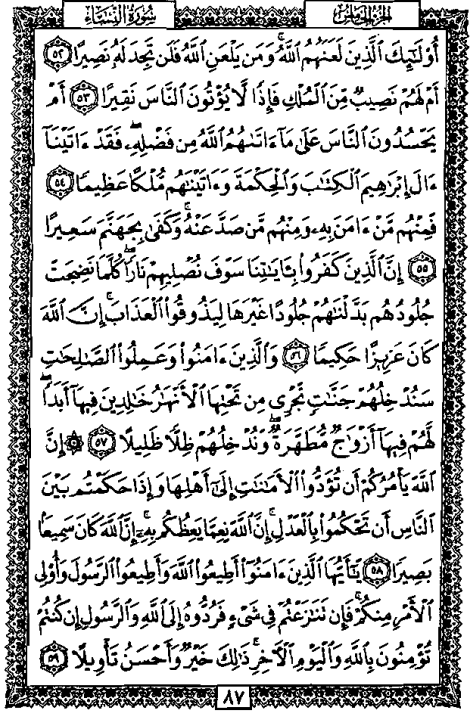 سُورَةُ النِّسَاءِ الجُزْءُ الخَامِسُ
أُوْلَٰٓئِكَ ٱلَّذِينَ لَعَنَهُمُ ٱللَّهُۖ وَمَن يَلْعَنِ ٱللَّهُ فَلَن تَجِدَ لَهُۥ نَصِيرًا ٥٢
أَمْ لَهُمْ نَصِيبٌ مِّنَ ٱلْمُلْكِ فَإِذًا لَّا يُؤْتُونَ ٱلنَّاسَ نَقِيرًا ٥٣ أَمْ
يَحْسُدُونَ ٱلنَّاسَ عَلَىٰ مَآ ءَاتَىٰهُمُ ٱللَّهُ مِن فَضْلِهِۦۖ فَقَدْ ءَاتَيْنَآ
ءَالَ إِبْرَٰهِيمَ ٱلْكِتَٰبَ وَٱلْحِكْمَةَ وَءَاتَيْنَٰهُم مُّلْكًا عَظِيمًا ٥٤
فَمِنْهُم مَّنْ ءَامَنَ بِهِۦ وَمِنْهُم مَّن صَدَّ عَنْهُۚ وَكَفَىٰ بِجَهَنَّمَ سَعِيرًا
٥٥ إِنَّ ٱلَّذِينَ كَفَرُوا۟ بِـَٔايَٰتِنَا سَوْفَ نُصْلِيهِمْ نَارًا كُلَّمَا نَضِجَتْ
جُلُودُهُم بَدَّلْنَٰهُمْ جُلُودًا غَيْرَهَا لِيَذُوقُوا۟ ٱلْعَذَابَۗ إِنَّ ٱللَّهَ
كَانَ عَزِيزًا حَكِيمًا ٥٦ وَٱلَّذِينَ ءَامَنُوا۟ وَعَمِلُوا۟ ٱلصَّٰلِحَٰتِ
سَنُدْخِلُهُمْ جَنَّٰتٍ تَجْرِى مِن تَحْتِهَا ٱلْأَنْهَٰرُ خَٰلِدِينَ فِيهَآ أَبَدًاۖ
لَّهُمْ فِيهَآ أَزْوَٰجٌ مُّطَهَّرَةٌۖ وَنُدْخِلُهُمْ ظِلًّا ظَلِيلًا ٥٧ ۞ إِنَّ
ٱللَّهَ يَأْمُرُكُمْ أَن تُؤَدُّوا۟ ٱلْأَمَٰنَٰتِ إِلَىٰٓ أَهْلِهَا وَإِذَا حَكَمْتُم بَيْنَ
ٱلنَّاسِ أَن تَحْكُمُوا۟ بِٱلْعَدْلِۚ إِنَّ ٱللَّهَ نِعِمَّا يَعِظُكُم بِهِۦٓۗ إِنَّ ٱللَّهَ كَانَ سَمِيعًۢا
بَصِيرًا ٥٨ يَٰٓأَيُّهَا ٱلَّذِينَ ءَامَنُوٓا۟ أَطِيعُوا۟ ٱللَّهَ وَأَطِيعُوا۟ ٱلرَّسُولَ وَأُو۟لِى
ٱلْأَمْرِ مِنكُمْۖ فَإِن تَنَٰزَعْتُمْ فِى شَىْءٍ فَرُدُّوهُ إِلَى ٱللَّهِ وَٱلرَّسُولِ إِن كُنتُمْ
تُؤْمِنُونَ بِٱللَّهِ وَٱلْيَوْمِ ٱلْأَخِرِۚ ذَٰلِكَ خَيْرٌ وَأَحْسَنُ تَأْوِيلًا ٥٩
٨٧